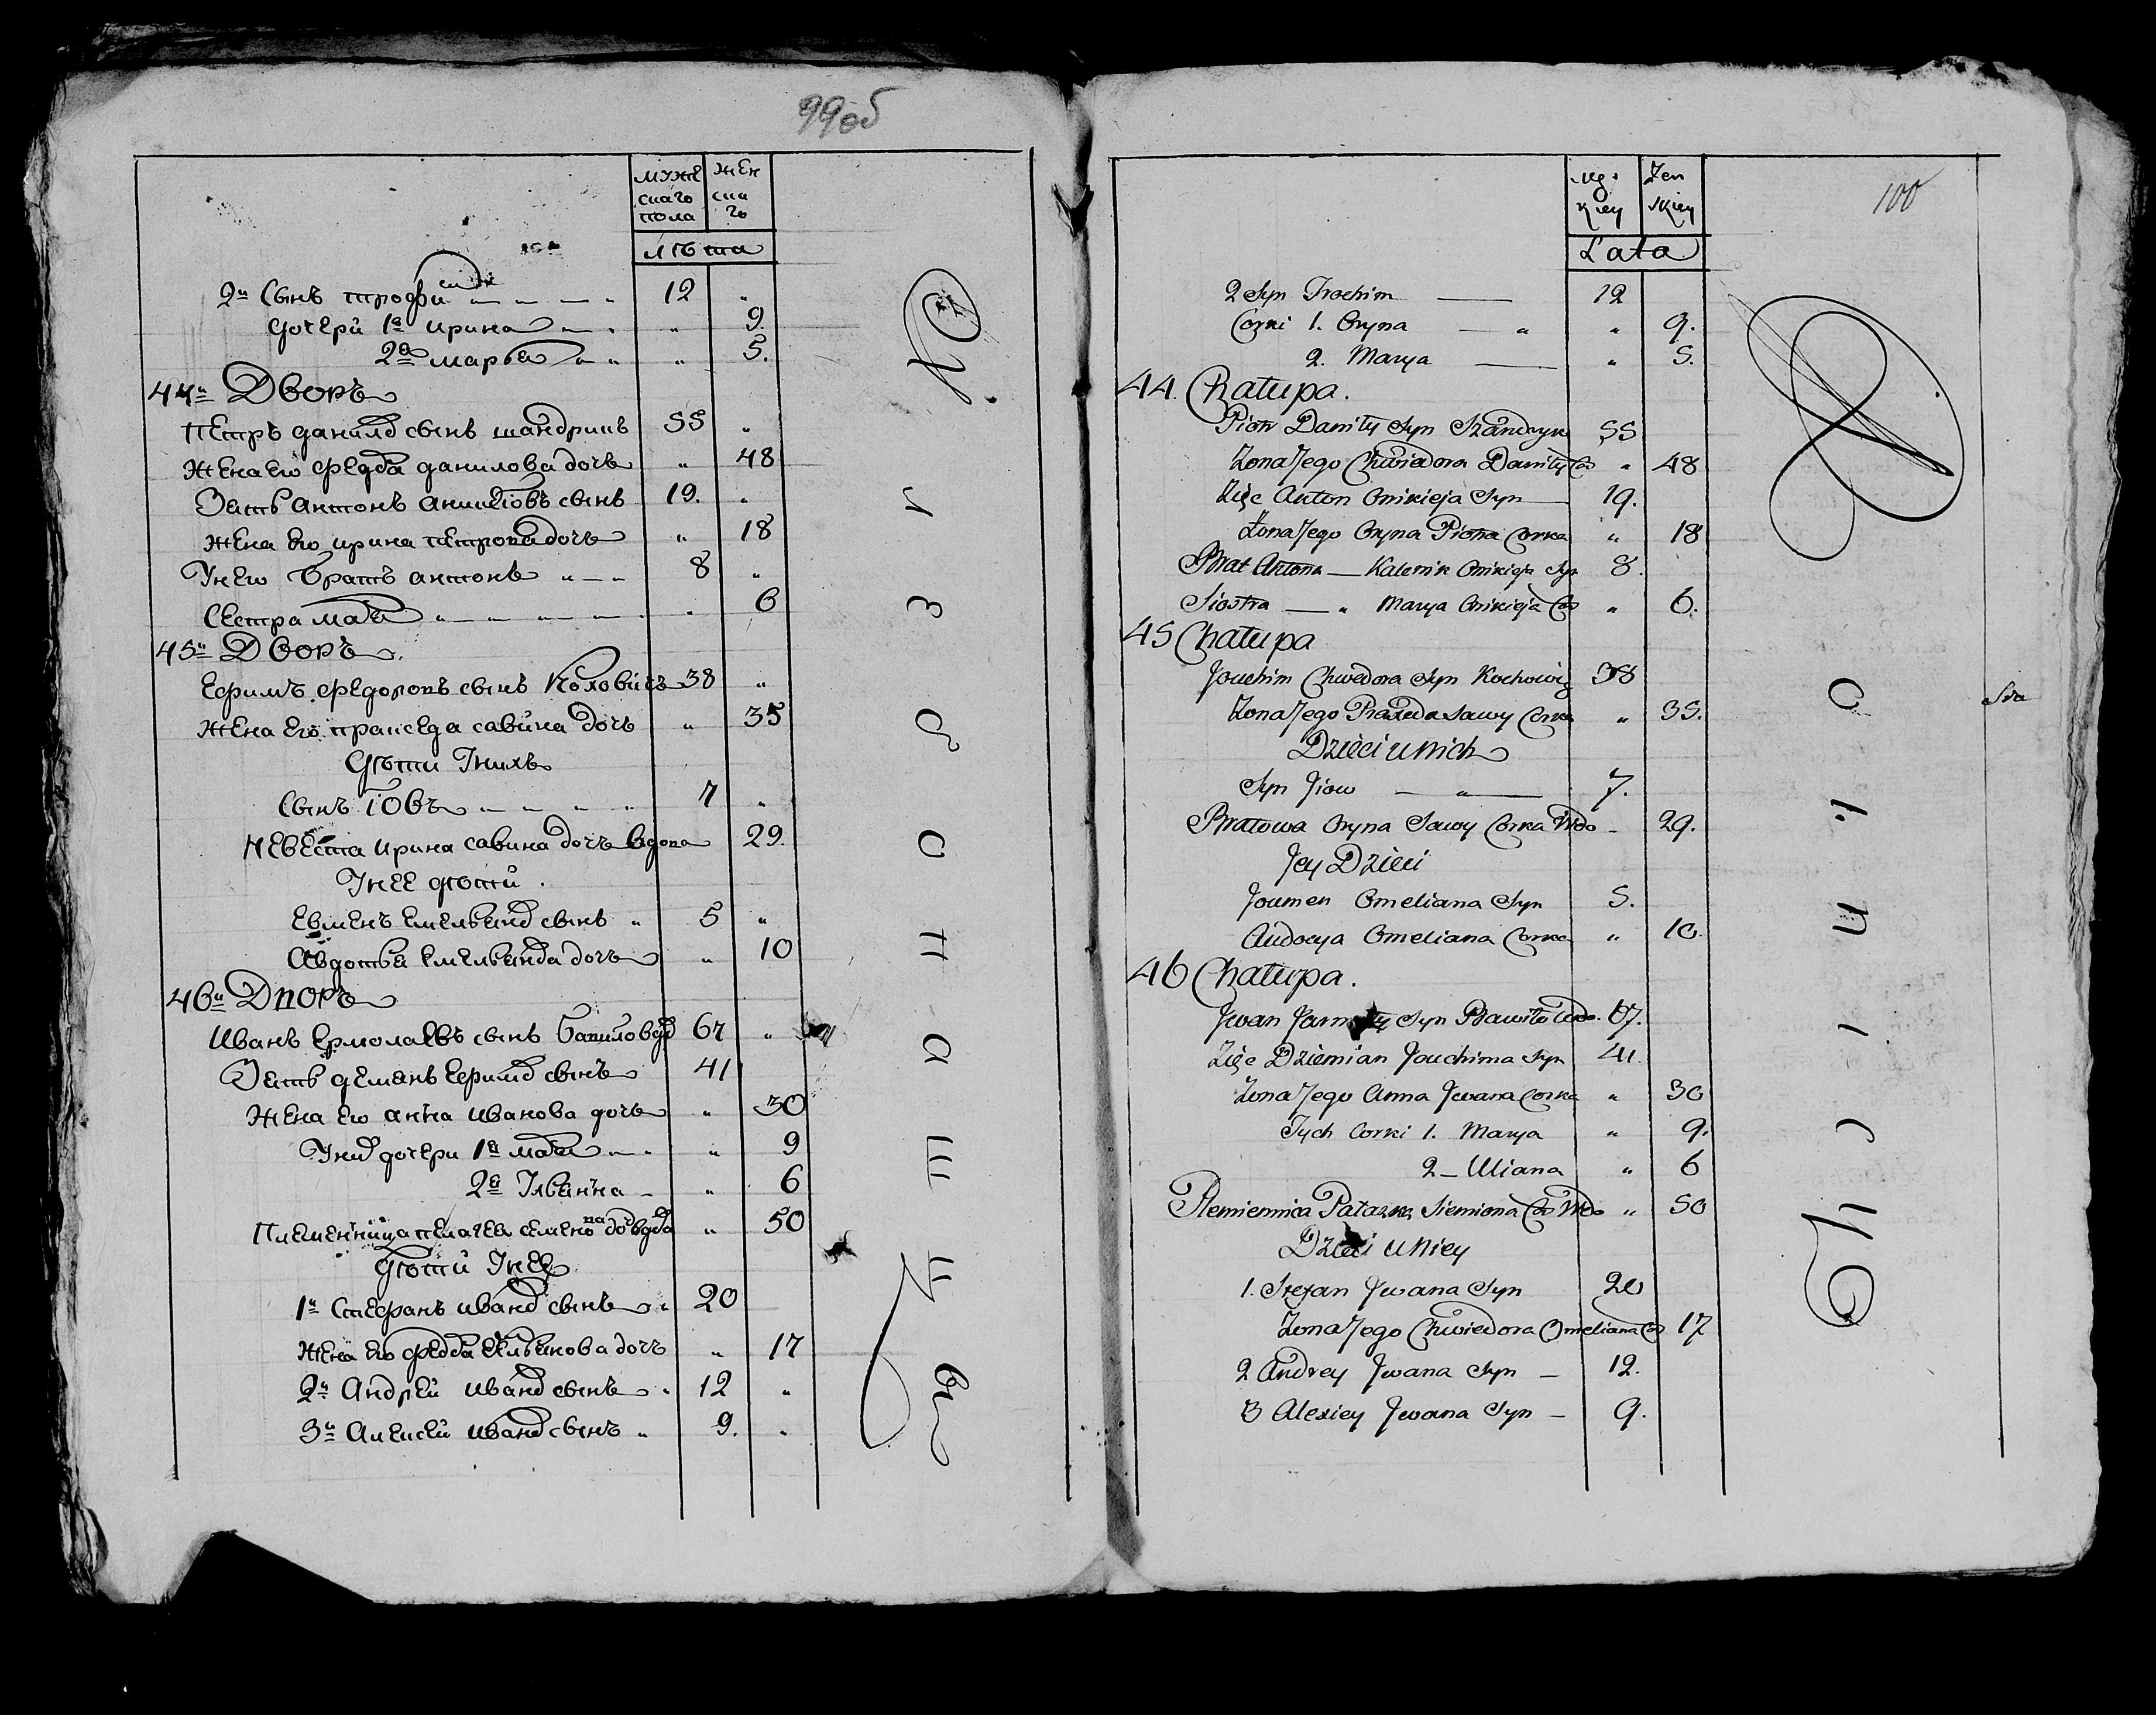 99об
муже
скаго
пола
жен
ска
го
лѣта
2й Сынъ трофи
дочери 1я ирина " 9.
2я марья " 5.
44й Дворъ
Петръ данилов сынъ шандрикъ 55 "
жена его федора данилова дочь " 48
Зять антонъ аникѣовъ сынъ 19. "
жена его ирина петрова дочь " 18
У него братъ антонъ 8 "
Сестра " 6
45й Дворъ
Ефимъ федоровъ сынъ Коховичъ 38 "
жена его праседа савина дочь " 35
Дѣти У нихъ
Сынъ Іовъ 7 "
невѣста ирина савина дочь вдова 29.
У нее дѣти
Евменъ емельянов сынъ 5 "
Авдотья емельянова дочь " 10
46й Дворъ
Иванъ Ермолаевъ сынъ 67 "
Зять демянъ Ефимов сынъ 41
жена его анна иванова дочь " 30
У них дочери 1я " 9
2я Ульянна " 6
Племенница семенова до вдова " 50
Дѣти У нее
1й Стефанъ иванов сынъ 20
жена его федора Емльянова дочь " 17
2й Андрей иванов сынъ 12 "
3й Алексей иванов сынъ 9. "
100
Męz
kiey
Zen
skiey
Lata
2 Syn Trochim 12
Corki 1. Oryna " 9.
2. Marya " 5.
44. Chałupa.
Piotr Daniły Syn Szandryk 55
Zona Jego Chwiedora Daniły Cor " 48
Zięc Anton Onikieja Syn 19.
Zona Jego Oryna Piotra Corka " 18
Brat Antona — Kalenik Onikieja Syn 8.
Siostra — " Marya Onikieja Cor " 6.
45 Chałupa
Jouchim Chwedora Syn Kochowicz 38
Zona Jego Praxeda Sawy Corka " 35.
Dzieci u Nich
Syn Jiow 7.
Bratowa Oryna Sawy Corka Wdo 29.
Jey Dzieci
Joumen Omeliana Syn 5.
Audocya Omeliana Corka " 10.
46 Chałupa.
Jwan Syn 67.
Zięc Dziemian Jouchima Syn 41.
Zona Jego Anna Jwana Corka " 30
Tych Corki 1. Marya " 9.
2 — Uliana " 6
Plemiennica Siemiona Cor Wdo " 50
Dzieci u Niey
1. Stefan Jwana Syn 20
Zona Jego Chwiedora Omeliana Cor 17
2 Andrey Jwana Syn — 12.
3 Alexiey Jwana Syn — 9.